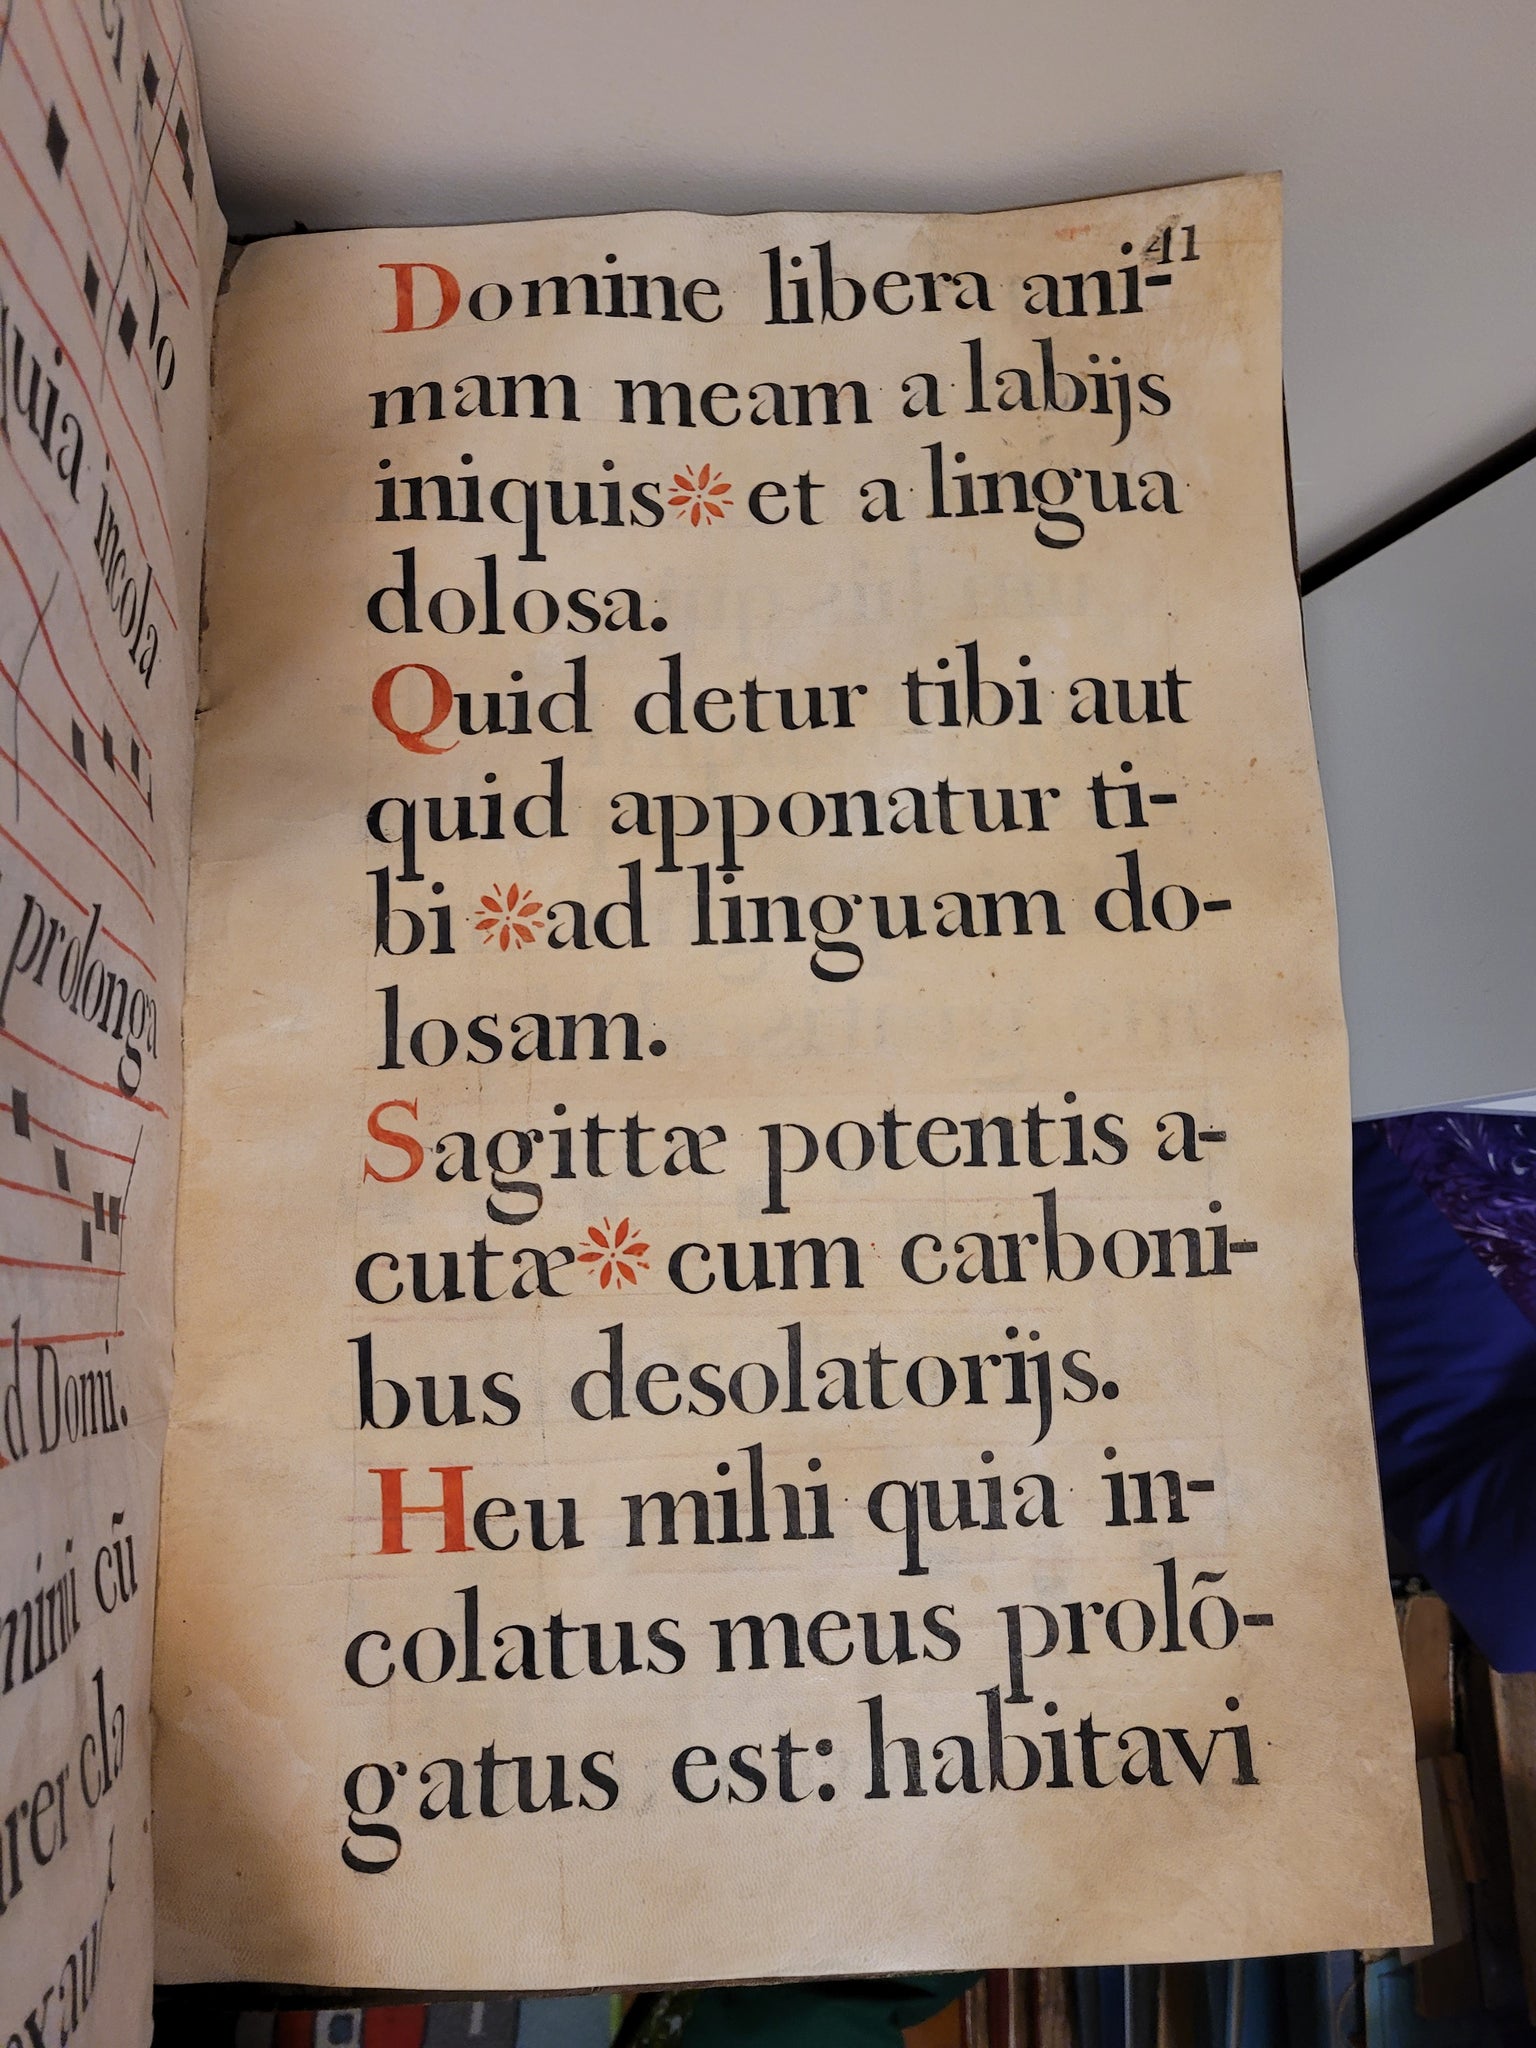 quia incola
prolonga
d Domi.
cũ
arer cla
exau
41
Domine libera ani-
mam meam a labijs
iniquis et a lingua
dolosa.
Quid detur tibi aut
quid apponatur ti-
bi ad linguam do-
losam.
Sagittæ potentis a-
cutæ cum carboni-
bus desolatorijs.
Heu mihi quia in-
colatus meus prolõ-
gatus est: habitavi